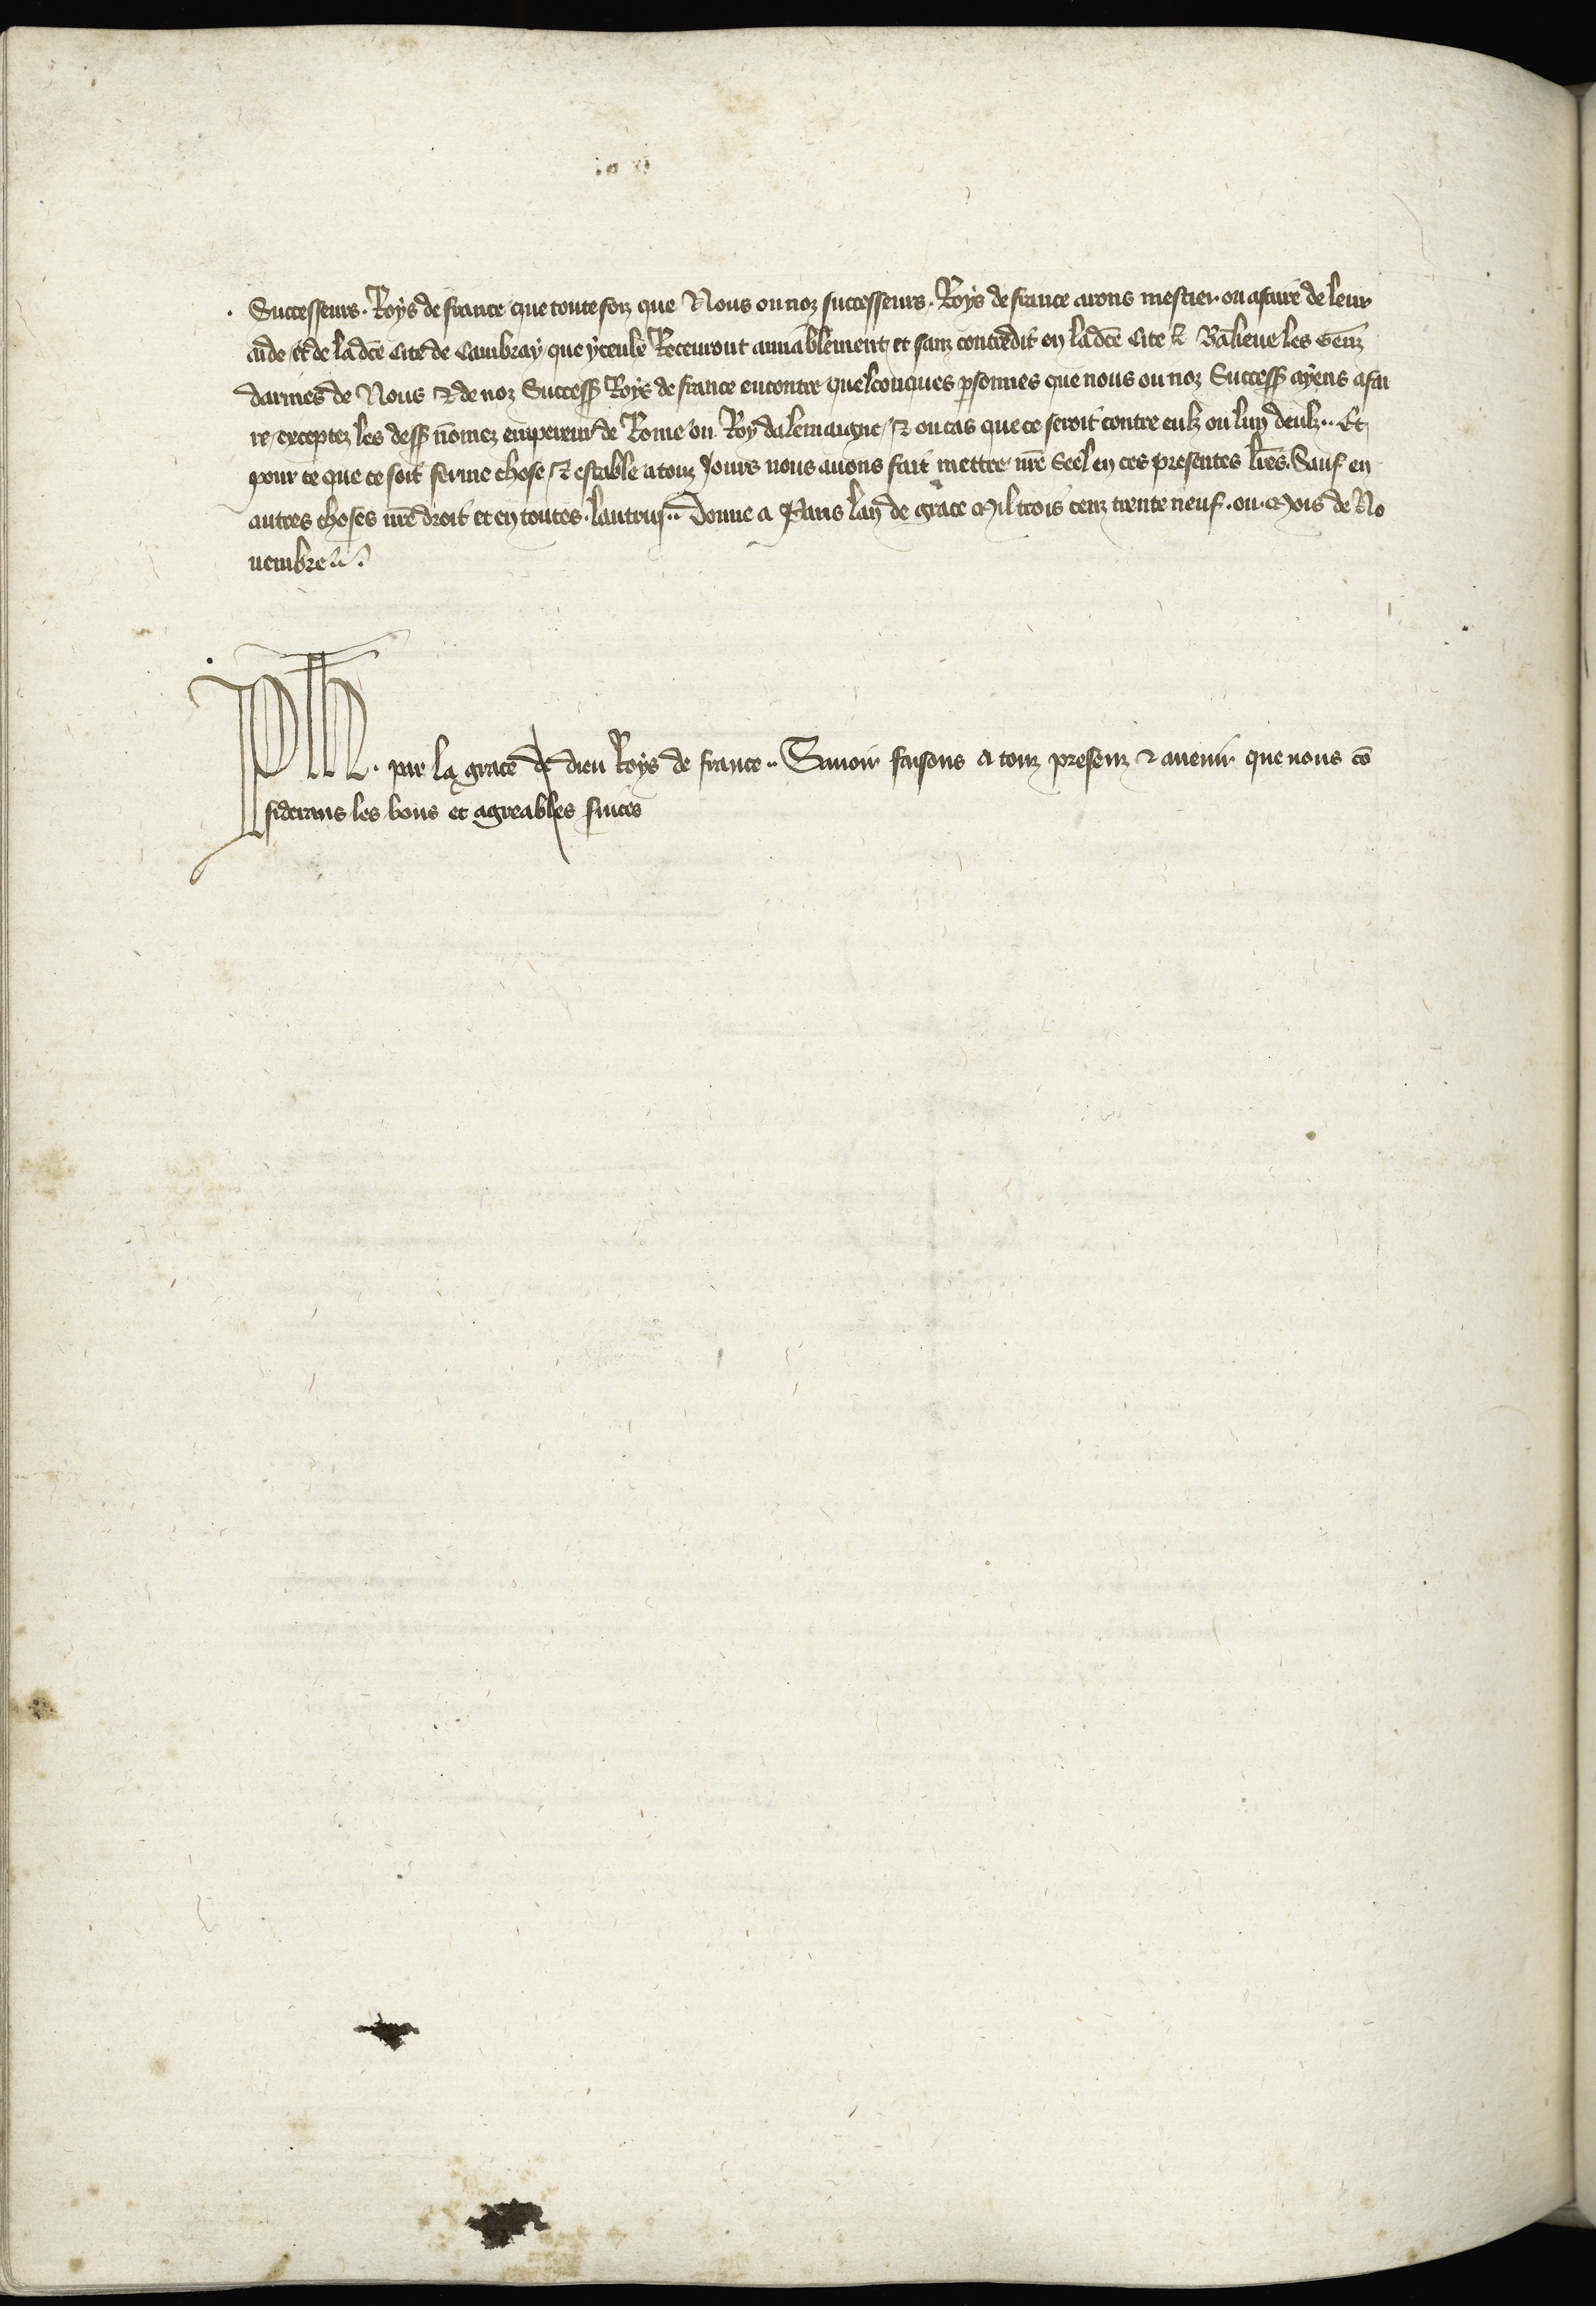 Successeurs. Roys de france que toutesfoiz que Nous ou noz successeurs. Roys de france arons mestier ou afaire de leur
aide et de lad̄ce Cite de Cambray, que yceulx Recevront amiablement et sanz contredit en lad̄ce Cite & Banlieue les Genz
darmes de Nous & de noz Success̄ Roys de france encontre quelconques p̱sonnes que nous ou noz Success̄ ayens a fai
re, exceptez les dess̄ nōmez empereur de Rome ou Roy dalemaigne, & ou cas que ce seroit contre eulz ou lun deulz.. Et
pour ce que ce soit ferme chose & estable a touz Jours nous avons fait mettre nr̄e Seel en ces presentes lr̄es. Sauf en
autres choses nr̄e droit et en toutes. lautruy.. Donne a Paris lan de grace Mil trois cenz trente neuf. ou Mois de No
uembre
Ph. par la grace de dieu Roys de france.. Savoir faisons a touz presenz & avenir que nous cō
siderans les bons et agreables suices